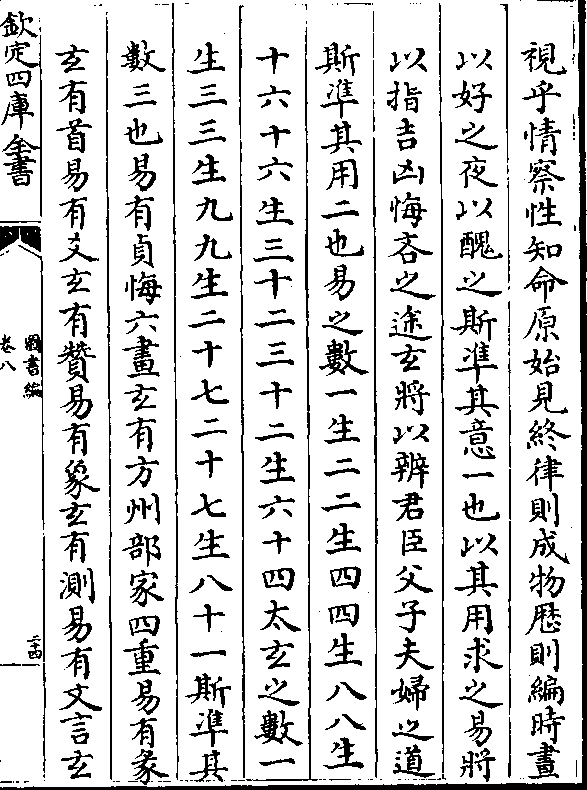 視乎情察性知命原始見終律則成物厯則編時晝
以好之夜以醜之斯準其意一也以其用求之易將
以指吉凶悔吝之途玄將以辨君臣父子夫婦之道
斯準其用二也易之數一生二二生四四生八八生
十六十六生三十二三十二生六十四太玄之數一
生三三生九九生二十七二十七生八十一斯準其
數三也易有貞悔六畫玄有方州部家四重易有彖
玄有首易有爻玄有贊易有象玄有測易有文言玄
欽定四庫全書
圖書編
卷八
二十四